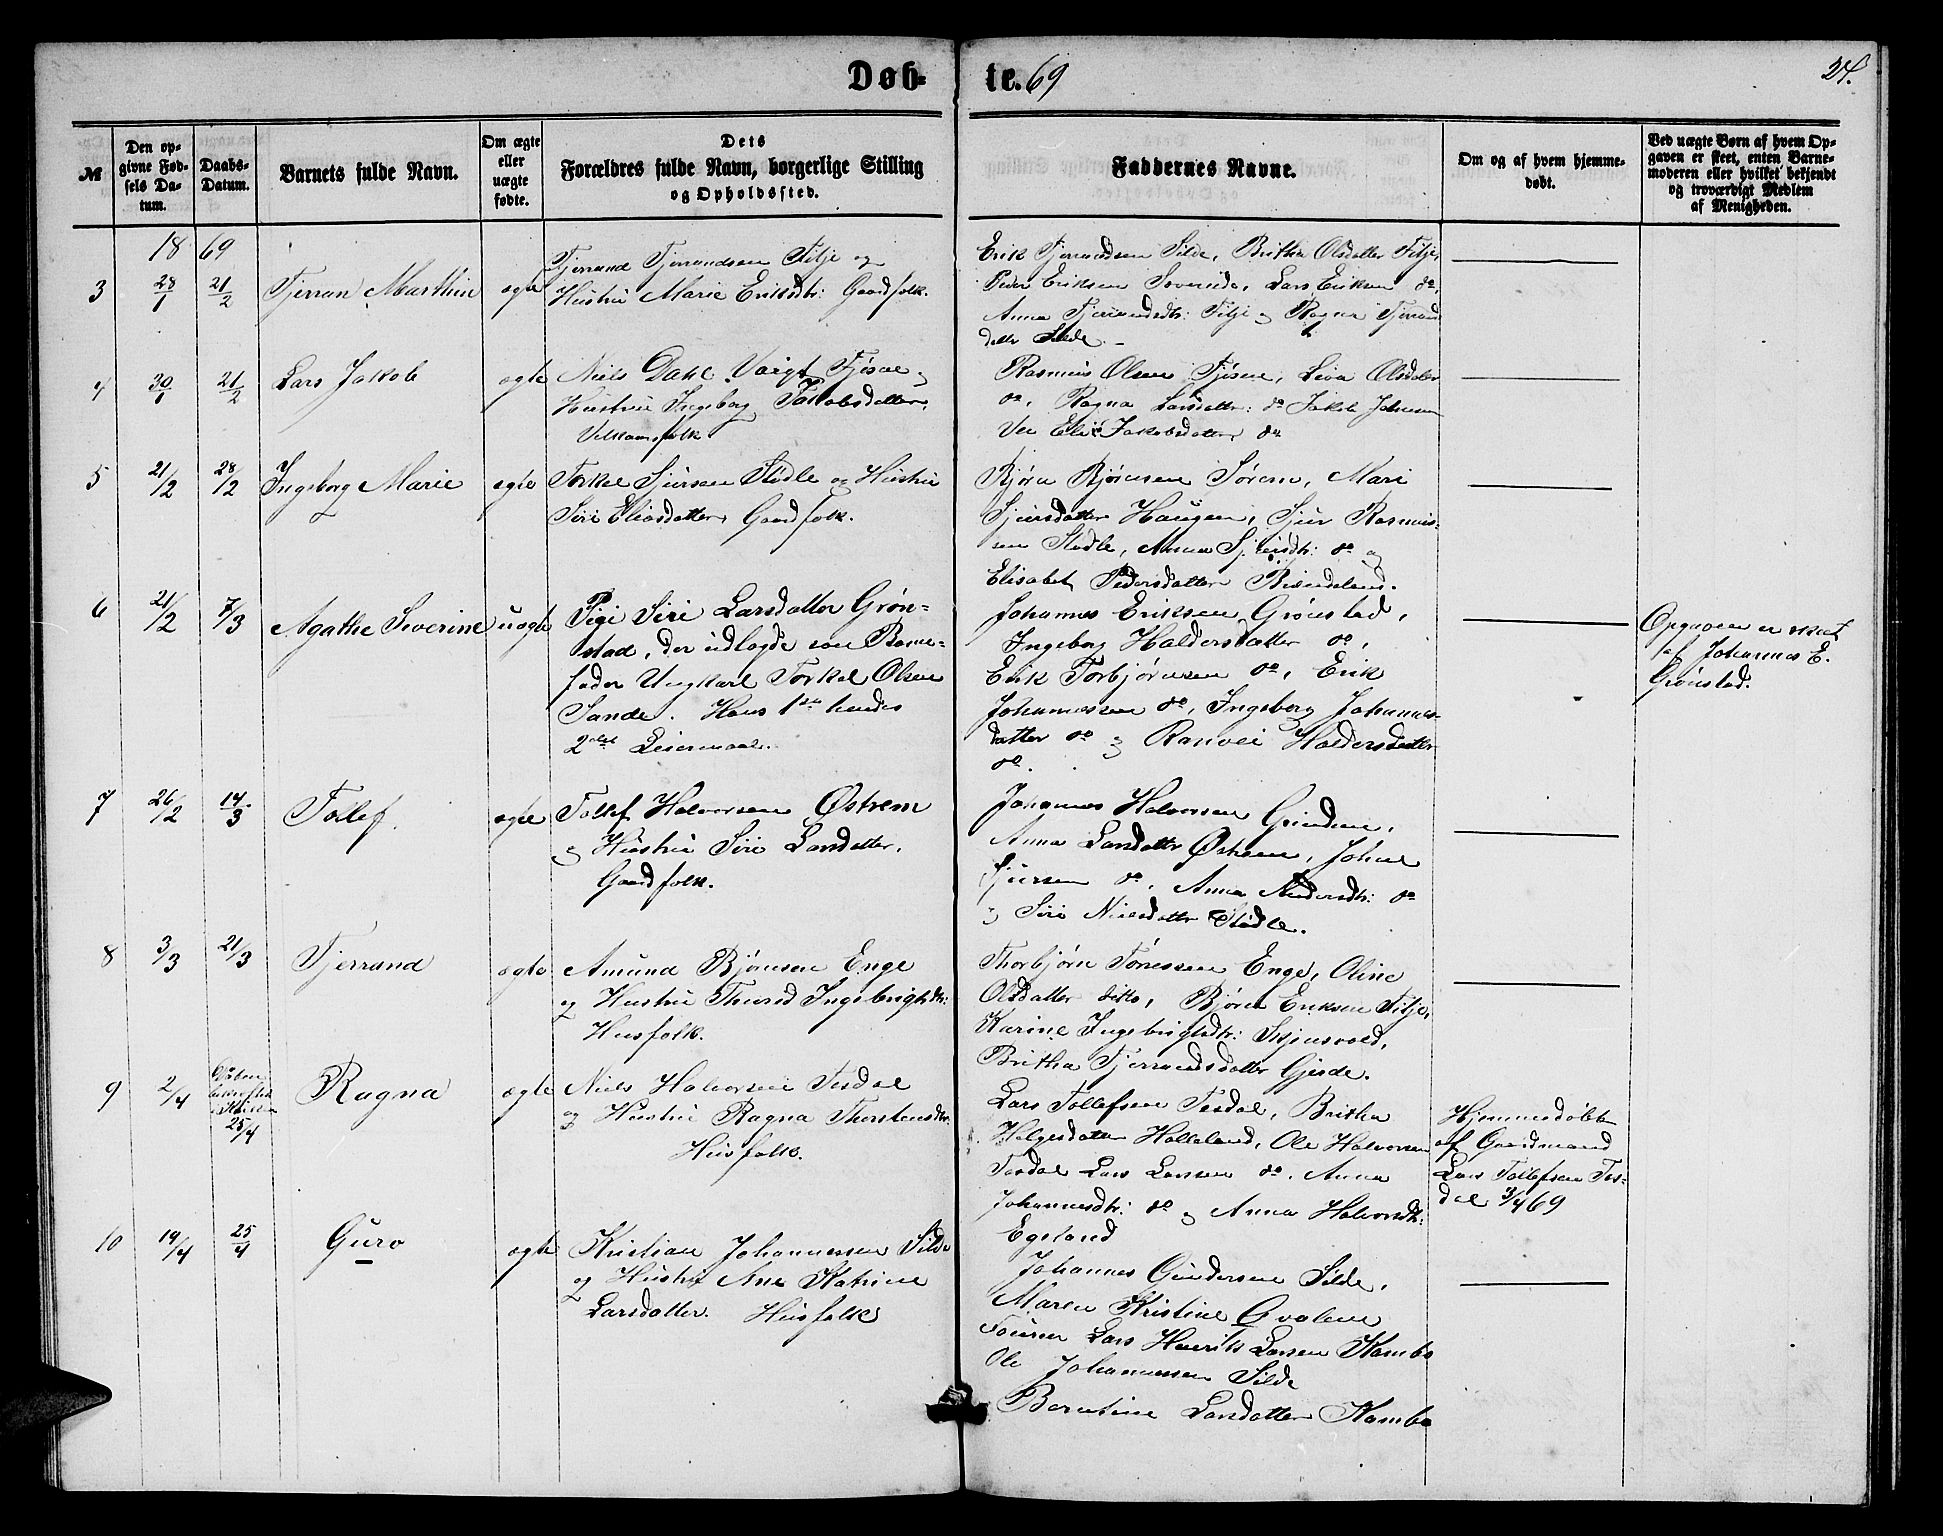 Døb-
te. 69
24.
№
Den op-
givne Fød-
sels Da-
tum.
Daabs-
Datum.
Barnets fulde Navn.
Om ægte
eller
uægte
fødte.
Dets
Forældres fulde Navn, borgerlige Stilling
og Opholdssted.
Faddernes Navne.
Om og af hvem hjemme-
døbt.
Ved uægte Børn af hvem Op-
gaven er skeet, enten Barne-
moderen eller hvilket bekjendt
og troværdigt Medlem
af Menigheden.
18 69
3
28/1
21/2
Tjerran Marthin
ægte
Tjerrand Tjerrandsen Fitje og
Hustru Marie Eriksdtr: Gaardfolk.
Erik Tjerrandsen Silde, Britha Olsdatter Fitje,
Peder Eriksen Lars Eriksen do,
Anna Tjerrandsdtr: Fitje og Ragna Tjerrand
datter Silde.
4
30/1
21/2
Lars Jakob
ægte
Niels Dahl Voigt Fjøsne og
Hustru Ingeborg Jakobsdatter,
folk
Rasmus Olsen Fjøsne, Olsdatter
do, Ragna Larsdatter: do Jakob Johnsen
Eli Jakobsdatter do
5
21/2
28/2
Ingeborg Marie
ægte
Torkel Sjursen Stødle og Hustru
Siri Eliasdatter, Gaardfolk.
Bjørn Bjørnsen Mari
Sjursdatter Haugen, Sjur Rasmus-
sen Stødle, Anna Sjursdtr: do og
Elisabet Pedersdatter
6
21/2
7/3
Agathe Severine
uægte
Pige Siri Larsdatter Grøn-
stad, der udlagde som Barne-
fader Ungkarl Torkel Olsen
Sande. Hans 1ste hendes
2det Leiermaal.
Johannes Eriksen Grønstad,
Ingeborg Haldorsdatter do,
Erik Torbjørnsen do, Erik
Johannessen do, Ingeborg Johannes-
datter do og Ranvei Haldorsdatter
do.
Opgaven er skeet
af Johannes E.
Grønstad.
7
26/2
14/3
Tollef.
ægte
Tollef Halvorsen Østrem
og Hustru Siri Larsdatter,
Gaardfolk.
Johannes Halvorsen Grindene,
Anna Larsdatter Østrem, Johan
Sjursen do, Anna Andersdtr: do
og Siri Nielsdatter Stødle.
8
3/3
21/3
Tjerrand
ægte
Amund Bjørnsen Enge
og Hustru Thurid Ingebrigtsdtr:
Husfolk.
Thorbjørn Tønessen Enge, Oline
Olsdatter ditto, Bjørn Eriksen Fitje,
Karine Ingebrigtsdtr: Skjensvold,
Britha Tjerrandsdatter Gjerde.
9
2/4
Daaben
bekræftet
i Kirken
25/4
Ragna
ægte
Niels Halvorsen Tesdal
og Hustru Ragna Thorstensdtr:
Husfolk.
Lars Tollefsen Tesdal, Britha
Helgesdatter Halleland, Ole Halvorsen
Tesdal Lars Larsen do. Anna
Johannesdtr: do og Anna Halvorsdtr:
Egeland
Hjemmedøbt
af Gaardmand
Lars Tollefsen Tes-
dal 3/4 69
10
19/4
25/4
Guro
ægte
Kristian Johannessen Silde
og Hustru Ane Katrine
Larsdatter. Husfolk
Johannes Gundersen Silde,
Maren Kristine
Lars Henrik Larsen Kambo
Ole Johannessen Silde
Berntine Larsdatter Kambo